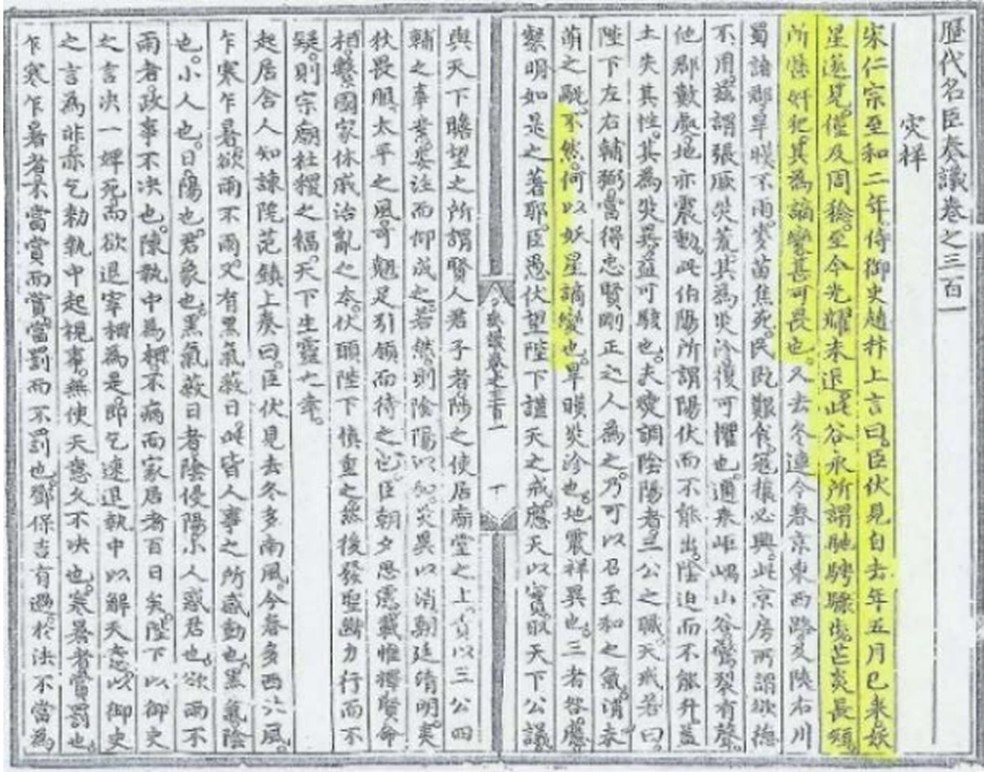 歷代名臣奏議卷之三百一
災祥
宋仁宗至和二年侍御史趙抃上言曰臣伏見自去年五月已來妖
星遂見僅及周稔至今光耀未退此谷永所謂馳騁驟步芒炎長短
所歷奸犯其為謫變甚可畏也又去冬連今春京東西路及陝右川
蜀諸郡旱暵不雨麥苗焦死民既艱食寇攘必興此京房所謂欲德
不用茲謂張厥災荒其為災沴復可懼也邇來岠嵎山谷驚裂有聲
他郡數處地亦震動此伯陽所謂陽伏而不能出陰迫而不能升蓋
土失其性其為災異益可駭也夫燮調陰陽者三公之職天戒若曰
陛下左右輔弼當得忠賢剛正之人為之乃可以召至和之氣消未
萌之戾不然何以妖星謫變也旱暵災沴也地震祥異也三者咎應
繫明如是之著耶臣愚伏望陛下謹天之戒應天以實取天下公議
奏議卷之三百一
十
與天下瞻望之所謂賢人君子者陟之使居廟堂之上責以三公四
輔之事業委注而仰成之若然則陰陽以和災異以消朝廷清明夷
狄畏服太平之風可翹足引領而待之也臣朝夕思慮載惟擇賢命
相繫國家休戚治亂之本伏願陛下慎重之然後發聖斷力行而不
疑則宗廟社稷之福天下生靈之幸
起居舍人知諫院范鎮上奏曰臣伏見去冬多南風今春多西北風
乍寒乍暑欲雨不雨又有黑氣蔽日此皆人事之所感動也黑氣陰
也小人也日陽也君象也黑氣蔽日者陰侵陽小人惑君也欲雨不
雨者政事不決也陳執中為相不病而家居者百日矣陛下以御史
之言決一婢死而欲退宰相為是即乞速退執中以解天意以御史
之言為非亦乞勅執中起視事無使天意久不決也寒暑者賞罰也
乍寒乍暑者不當賞而賞當罰而不罰也鄧保吉有過於法不當為